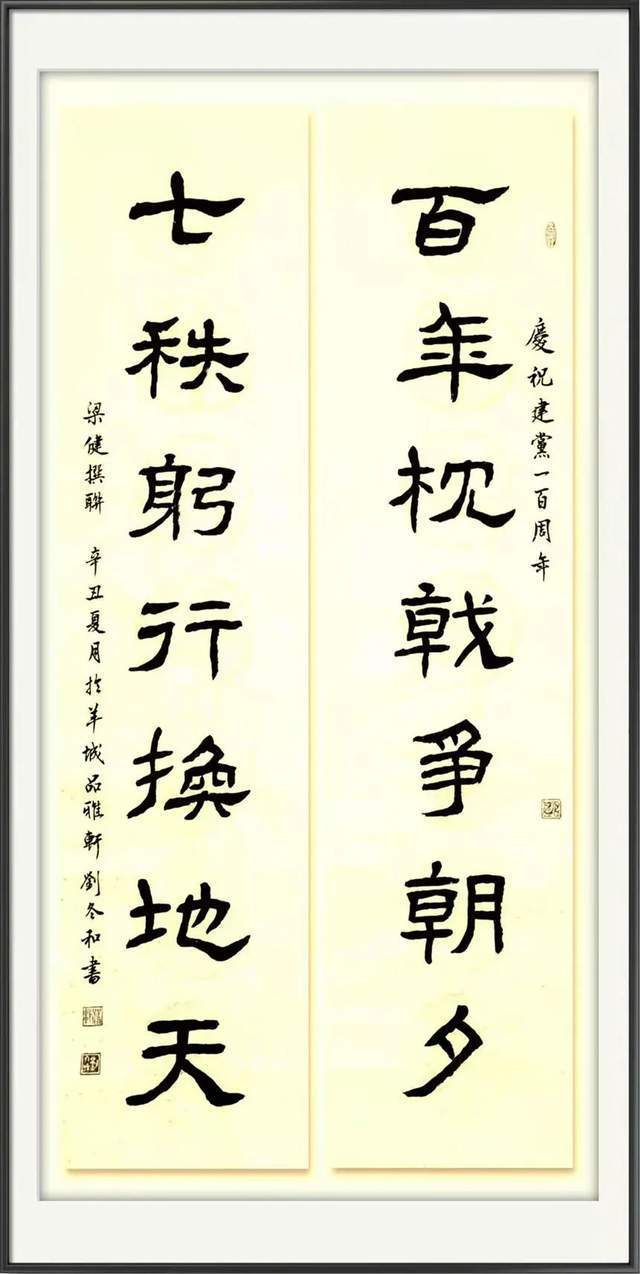 慶祝建黨一百周年
百年枕戟爭朝夕
七秩躬行換地天
梁健撰聯 辛丑夏月於羊城品雅軒劉冬和書